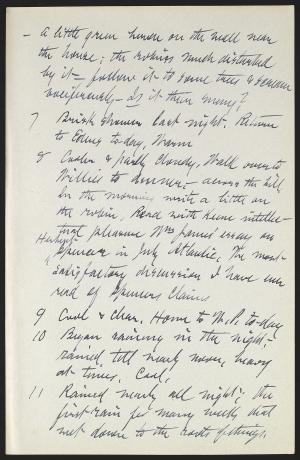 - a little green heron on the wall near
the house; the robins much disturbed
by it - follow it to some trees & scream
vociferously - Is it their enemy?
7 Brisk shower last night. Return
to Esopus to-day, Warm
8 Cooler & partly cloudy, Walk over to
Willies to dinner, - across the hill,
In the morning write a little on
the robin, Read with keen intellec-
tual pleasure Wm James' essay on
Herbert
Spencer in July Atlantic, The most
satisfactory discussion I have ever
read of Spencers Claims
9 Cool & clear. Home to W.P. to-day
10 Began raining in the night, -
rained till nearly noon, heavy
at times, Cool,
11 Rained nearly all night; the
first rain for many weeks that
met down to the roots of things.